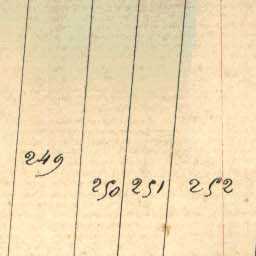 249
250 251 252